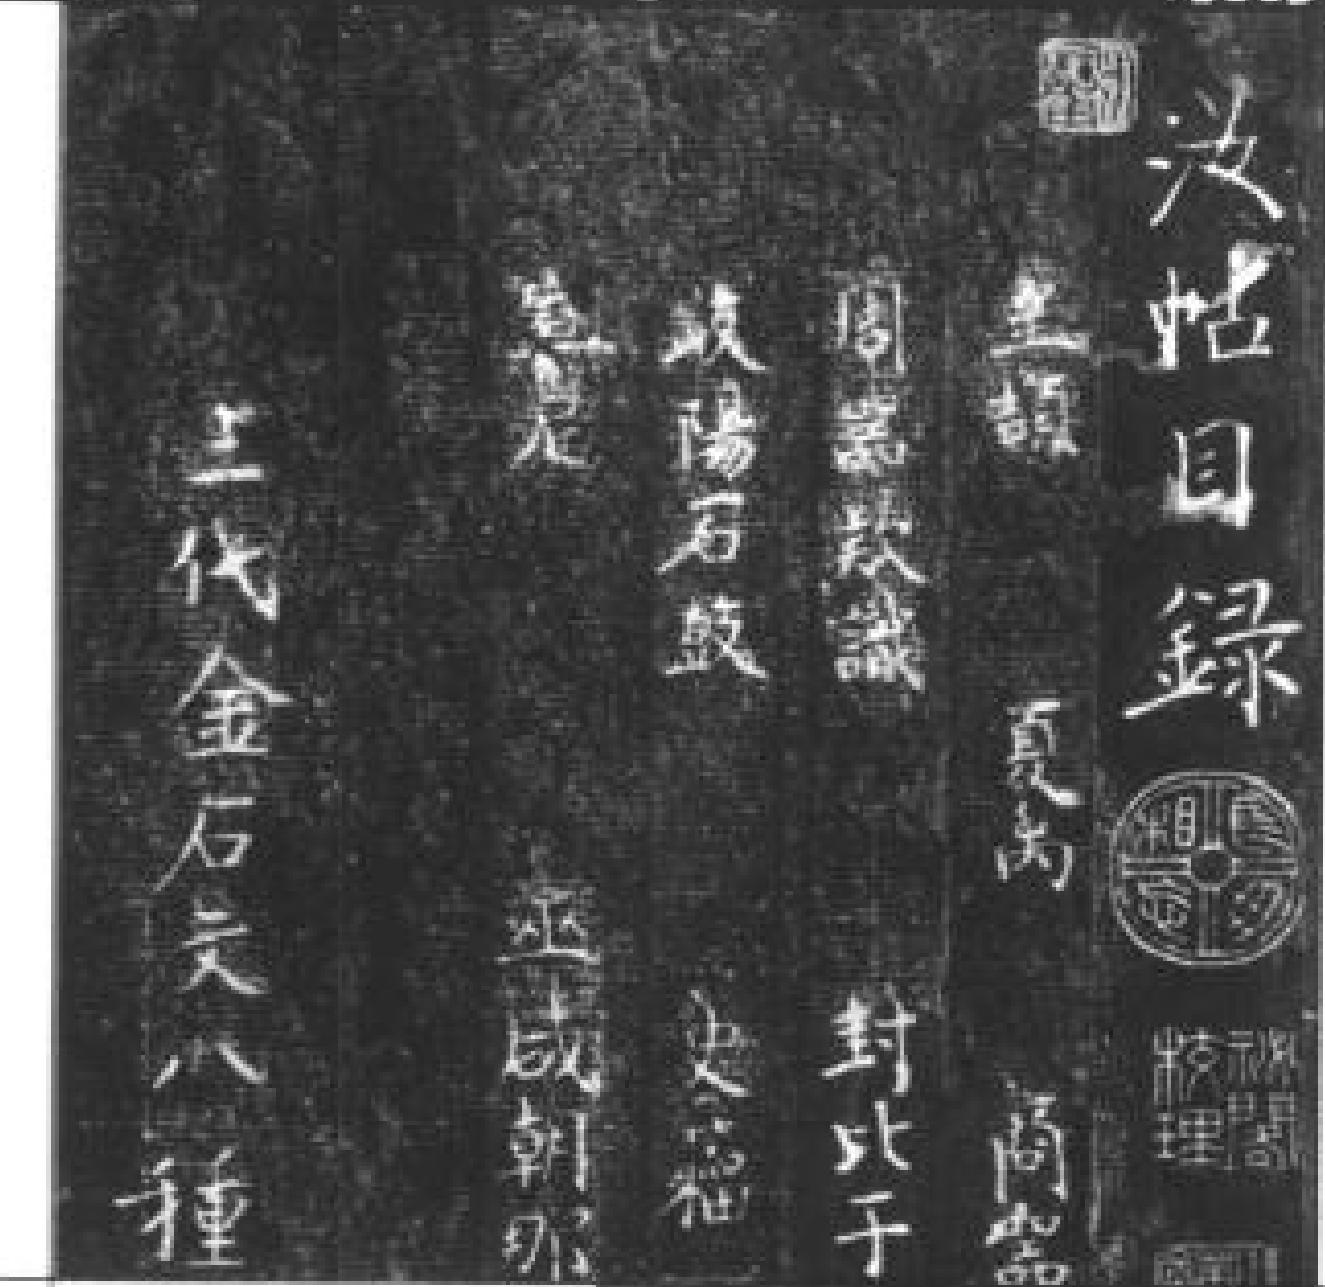 汝帖目録
祕閣校理
皇頡 夏禹 商器
周器款識 封比干
岐陽石鼓 史籀
宣尼 巫咸朝那
三代金石文八種